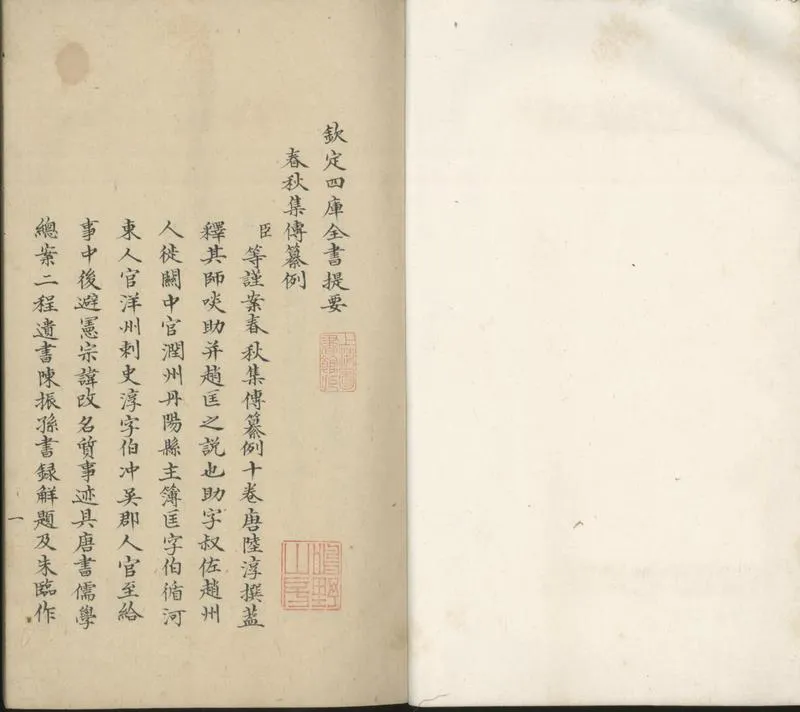 欽定四庫全書提要
春秋集傳纂例
臣等謹案春秋集傳纂例十卷唐陸淳撰葢
釋其師啖助并趙匡之説也助字叔佐趙州
人徙關中官潤州丹陽縣主簿匡字伯循河
東人官洋州刺史淳字伯冲吳郡人官至給
事中後避憲宗諱改名質事迹具唐書儒學
總案二程遺書陳振孫書録解題及朱臨作
一